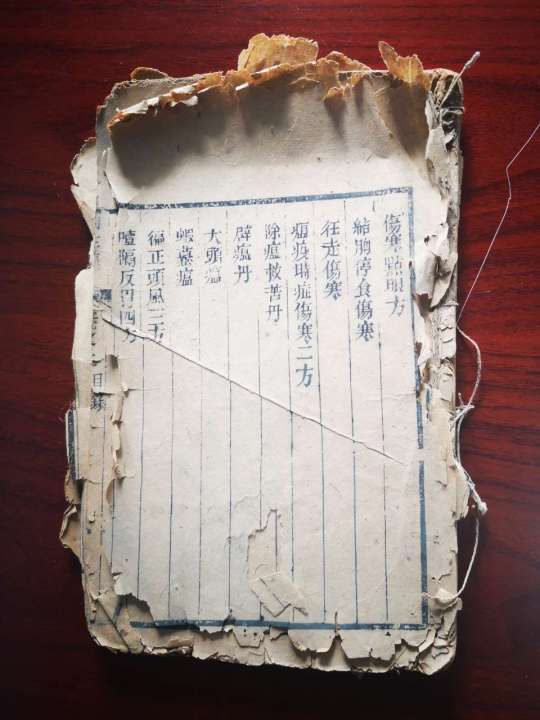 傷寒點眼方
結胸停食傷寒
狂走傷寒
症傷寒二方
除瘟救苦丹
辟瘟丹
大頭瘟
蝦蟇瘟
偏正頭風三方
噎膈反胃四方
目錄